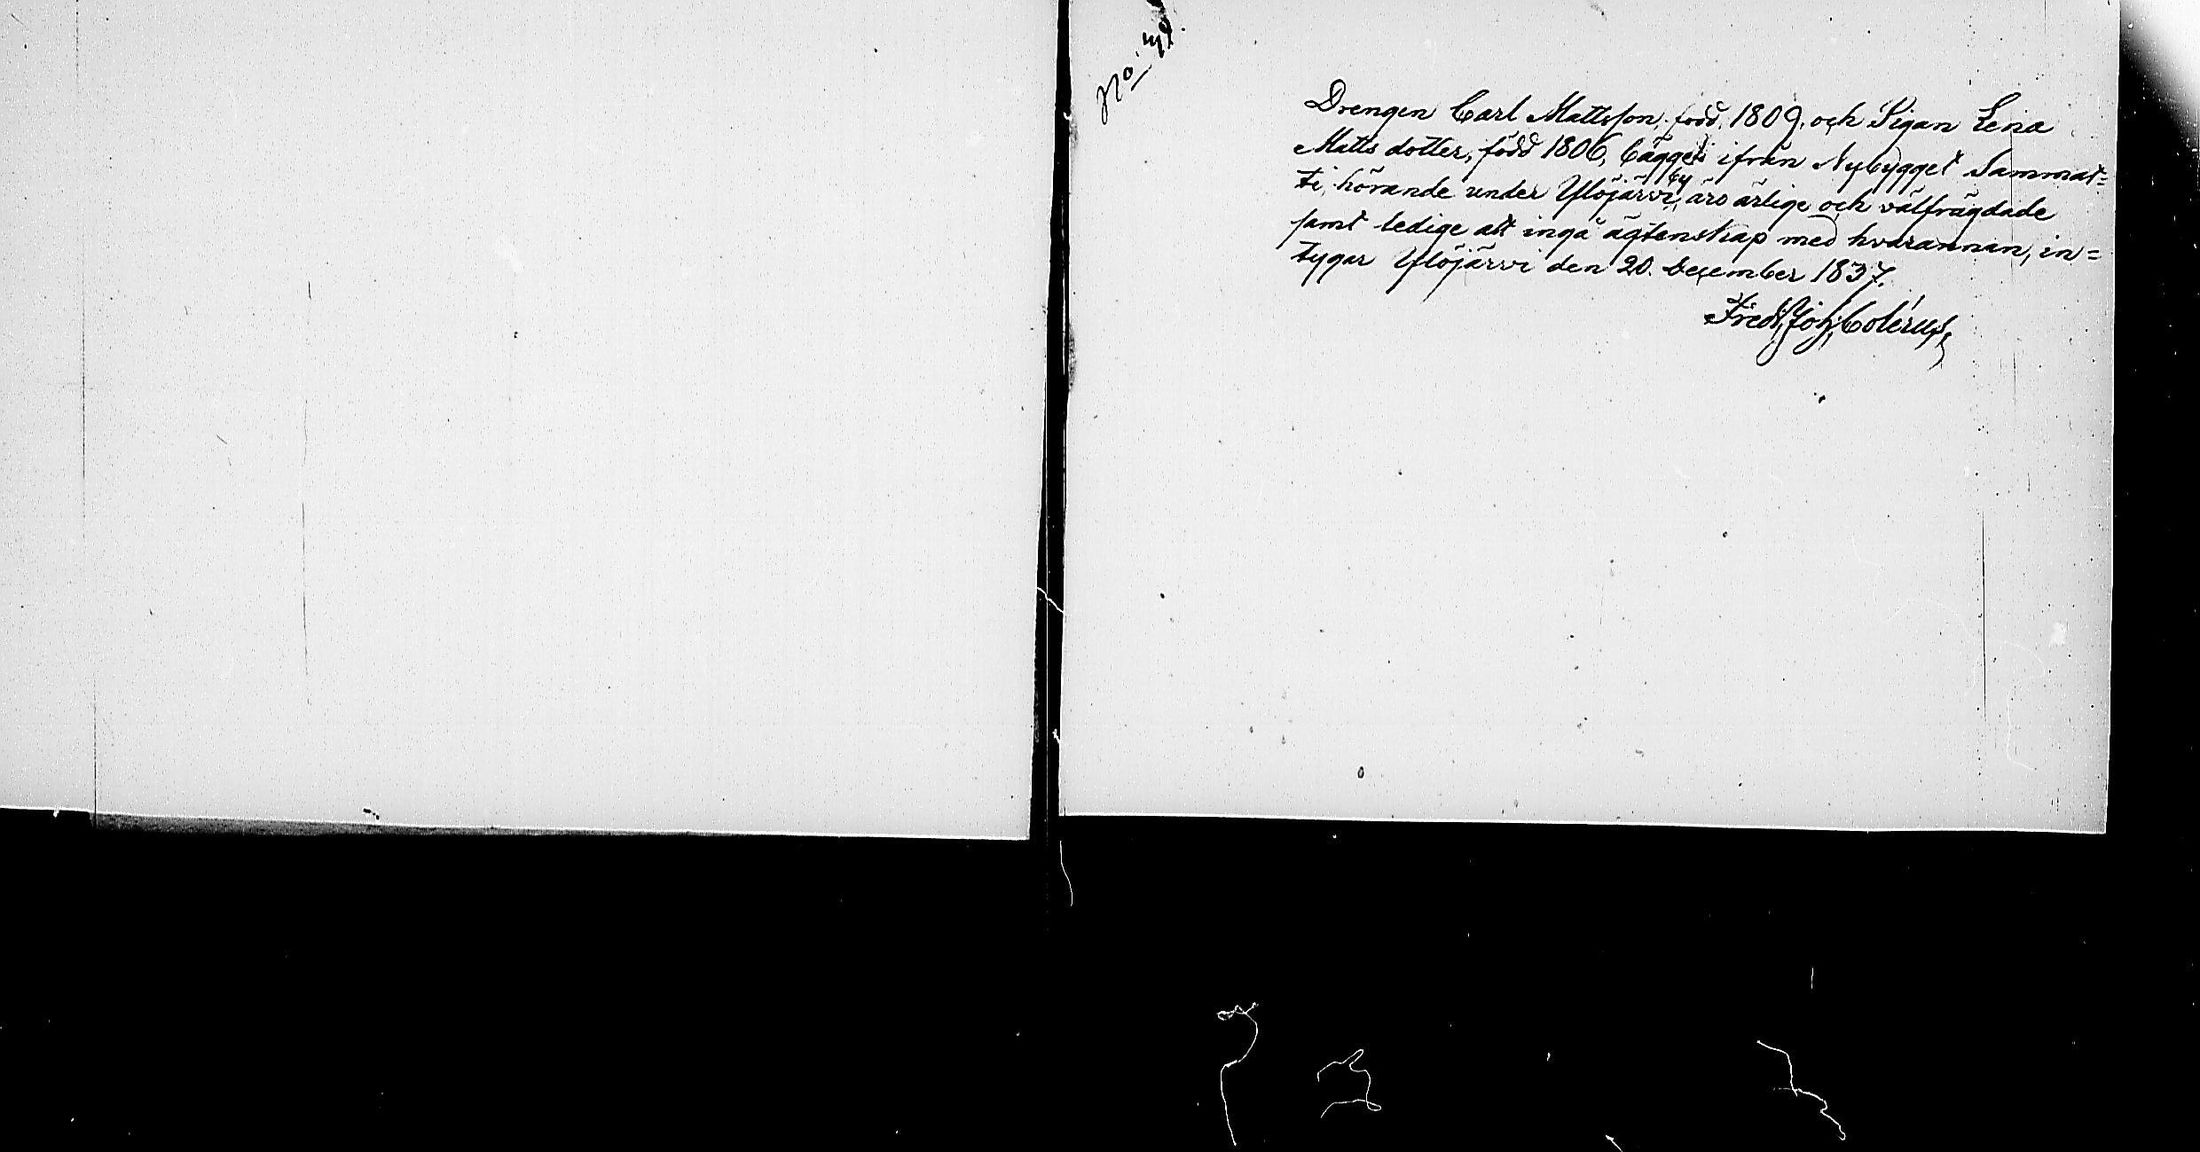 No
Drengen Carl Mattsson, född, 1809, och Pigan Lena
Matts dotter, född 1806, bägge ifrån Nybygget Sammat=
ti, hörande under Ylöjärvi by, äro ärlige och välfrägdade
samt ledige att ingå ägtenskap med hvarannan, in=
tygar Ylöjärvi den 20. December 1837.
Fredr, Joh, Colérus,